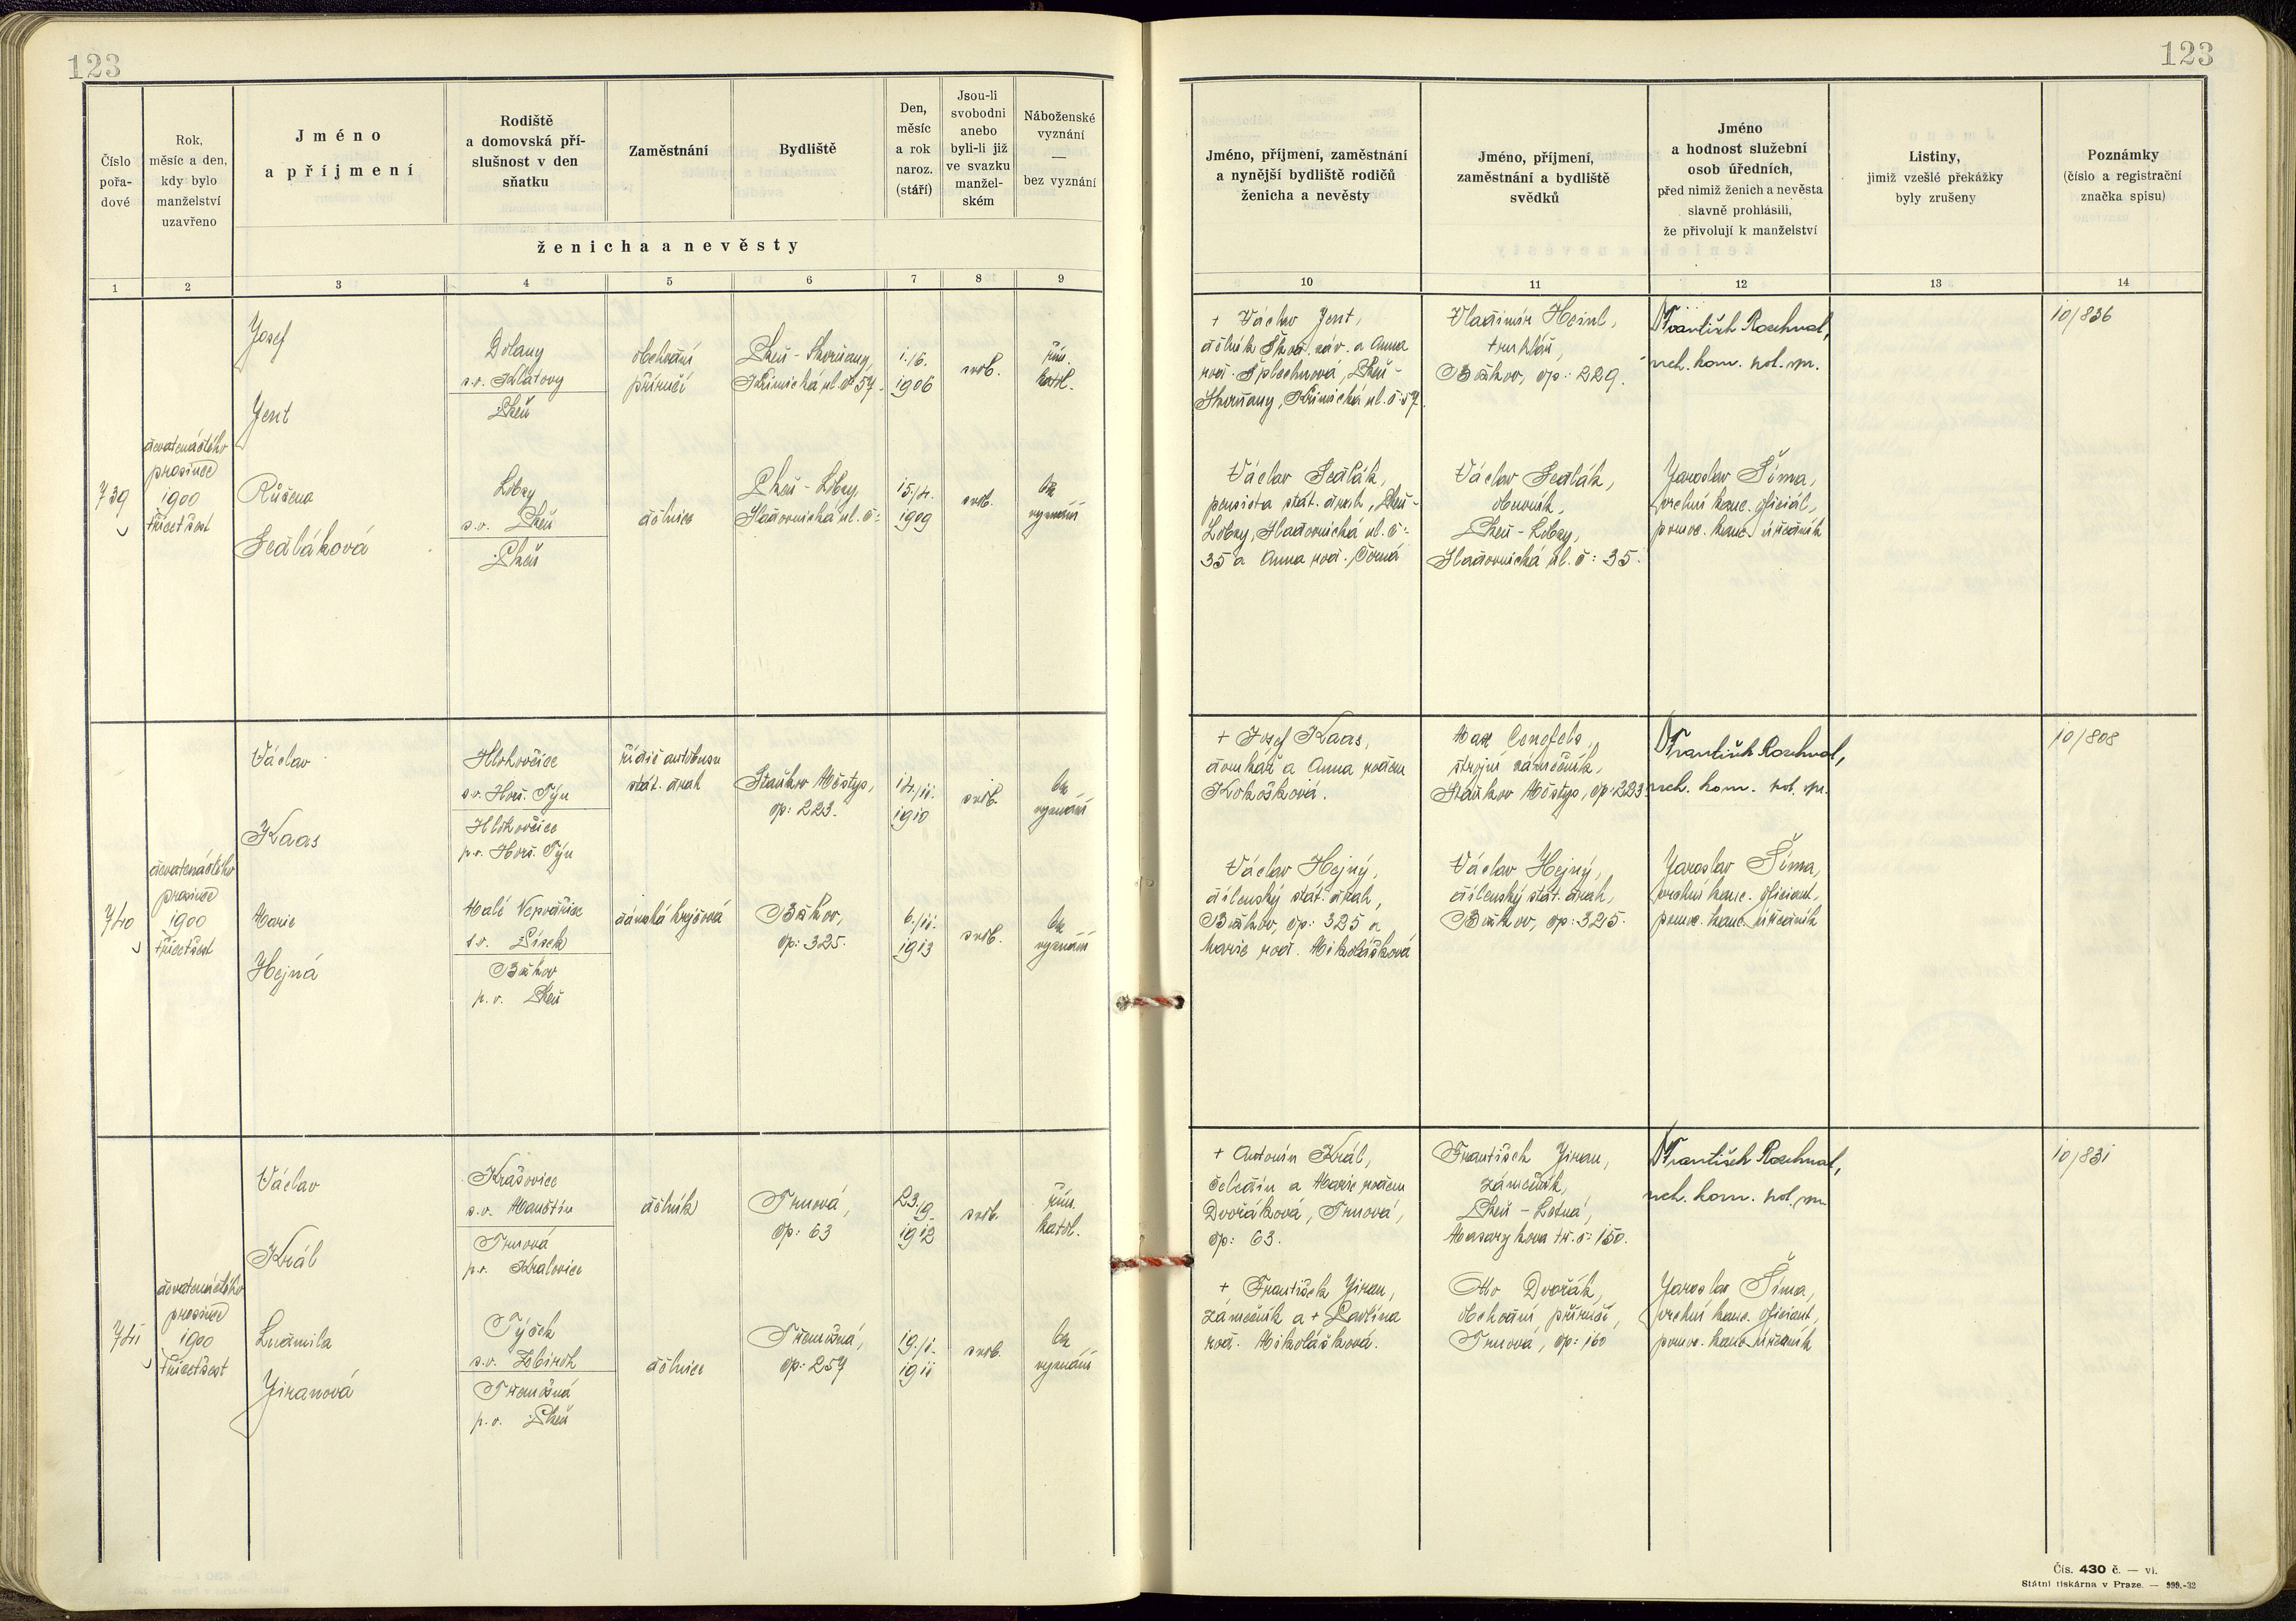 123
123
Číslo
pořa-
dové
Rok,
měsíc a den,
kdy bylo
manželství
uzavřeno
Jméno
a příjmení
Rodiště
a domovská pří-
slušnost v den
sňatku
Zaměstnání
Bydliště
Den,
měsíc
a rok
naroz.
(stáří)
Jsou-li
svobodni
anebo
byli-li již
ve svazku
manžel-
ském
Náboženské
vyznání
—
bez vyznání
ženicha a nevěsty
Jméno, příjmení, zaměstnání
a nynější bydliště rodičů
ženicha a nevěsty
Jméno, příjmení,
zaměstnání a bydliště
svědků
Jméno
a hodnost služební
osob úředních,
před nimiž ženich a nevěsta
slavně prohlásili,
že přivolují k manželství
Listiny,
jimiž vzešlé překážky
byly zrušeny
Poznámky
(číslo a registrační
značka spisu)
1 2 3 4 5 6 7 8 9 10 11 12 13 14
739
devatenáctého
prosince
1900
třicetšest
Josef
Jent
Dolany
s.o. Klatovy
Plzeň
obchodní
příručí
Plzeň - Skvrňany,
Křimická ul. č: 57.
1./6.
1906
svob.
řím.
katol.
Růžena
Sedláková
Lobzy
s.o. Plzeň
Plzeň
dělnice
Plzeň - Lobzy,
Sladovnická ul. č:
15./4.
1909
svob.
bez
vyznání
+ Václav Jent,
dělník Škod. záv. a Anna
roz. Šplechnová, Plzeň -
Skvrňany, Křimická ul. č: 57.
Václav Sedlák,
pensista stát. drah, Plzeň -
Lobzy, Sladovnická ul. č:
35 a Anna roz. Černá
Vladimír Heinl,
truhlář,
Bdkov, čp: 229.
Václav Sedlák,
obuvník,
Plzeň - Lobzy,
Sladovnická ul. č: 35.
František Rozhnal,
vrch. kom. pol. spr.
Jaroslav Šíma,
vrchní kanc. oficiál,
pomoc. kanc. úředník
10/836
740
devatenáctého
prosince
1900
třicetšest
Václav
Kaas
Hlohovčice
s.o. Horš. Týn
Hlohovčice
p.o. Horš. Týn
řidič autobusu
stát. drah
Staňkov Městys,
čp: 223.
14./11.
1910
svob.
bez
vyznání
Marie
Hejná
Malé Nepodřice
s.o. Písek
p.o. Plzeň
dámská krejčová
čp: 325.
6./11.
1913
svob.
bez
vyznání
+ Josef Kaas,
domkář a Anna rozen
Kokošková.
Václav Hejný,
dílenský stát. drah,
čp: 325 a
Marie roz. Mikolášková
Max
strojní zámečník,
Staňkov Městys, čp: 223.
Václav Hejný,
dílenský stát. drah,
čp: 325.
František Rozhnal,
vrch. kom. pol. spr.
Jaroslav Šíma,
vrchní kanc. oficiant,
pomoc. kanc. úředník
10/808
741
devatenáctého
prosince
1900
třicetšest
Václav
Král
Krašovice
s.o. Manětín
Trnová
p.o. Kralovice
dělník
Trnová,
čp: 63
23./9.
1912
svob.
řím.
katol.
Ludmila
Jiranová
Týček
s.o. Zbiroh
Třemošná
p.o. Plzeň
dělnice
Třemošná,
čp: 257
19./1.
1911
svob.
bez
vyznání
+ Antonín Král,
čeledín a Marie rozen
Dvořáková, Trnová,
čp: 63.
+ František Jiran,
zámečník a + Pavlína
roz. Mikolášková.
František Jiran,
zámečník,
Plzeň - Letná,
Masarykova tř. č: 150.
Oto Dvořák,
obchodní příručí,
Trnová, čp: 160
František Rozhnal,
vrch. kom. pol. spr.
Jaroslav Šíma,
vrchní kanc. oficiant,
pomoc. kanc. úředník
10/831
Čís. 430 č. — vi.
Státní tiskárna v Praze. — 999.-32